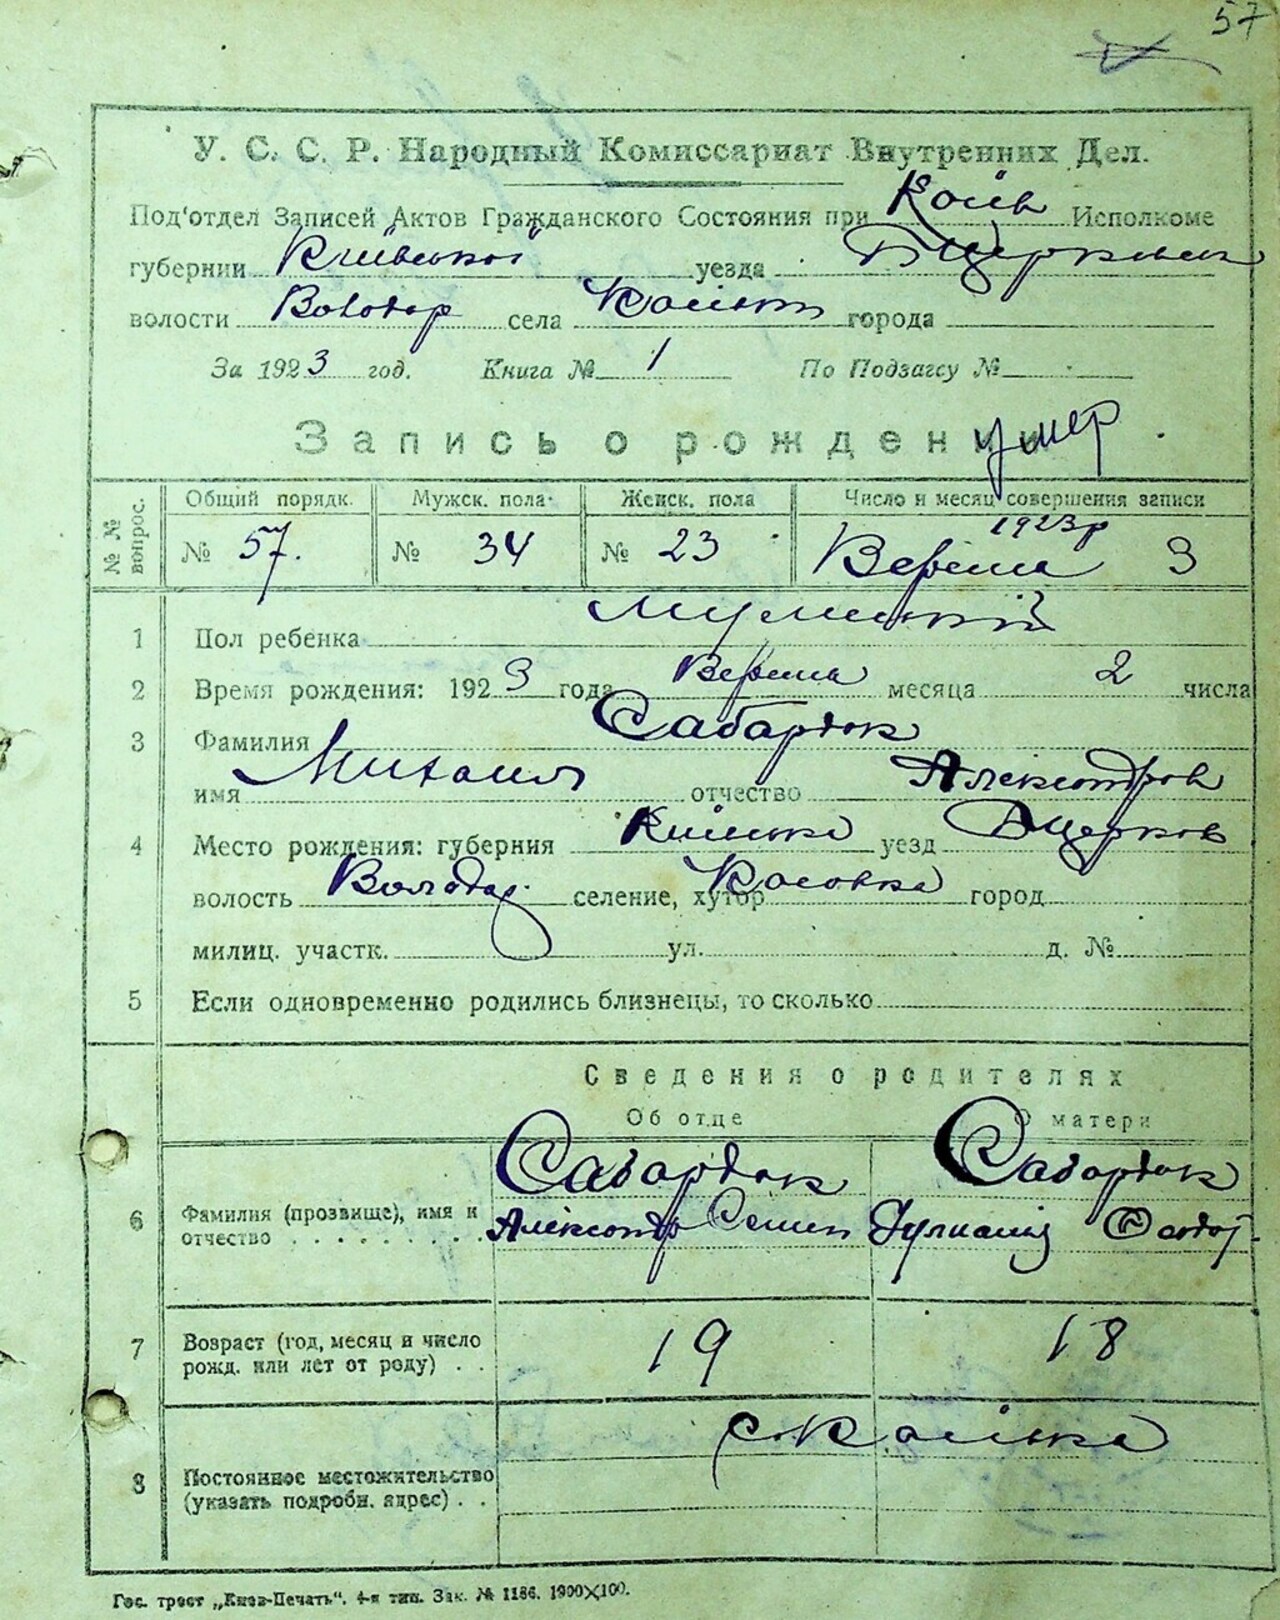 57
У. С. С. Р. Народный Комиссариат Внутренних Дел.
Под'отдел Записей Актов Гражданского Состояния при Косів Исполкоме
губернии Київської уезда БЦерковск
волости Володар села города
За 1923 год. Книга № 1 По Подзагсу №
Запись о рождении
умер
№№ вопрос. Общий порядк. Мужск. пола Женск. пола Число и месяц совершения записи
№ 57. № 34 № 23 1923р Вересня 3
1 Пол ребенка Мужеський
2 Время рождения: 1923 года Вересня месяца 2 числа
3 Фамилия Сабардок
имя Михаил отчество Александров
4 Место рождения: губерния Київська уезд БЦерков
волость Володар. селение, хутор Косовка город
милиц. участк. ул. д. №
5 Если одновременно родились близнецы, то сколько
Сведения о родителях
Об отце О матери
Сабардок Сабардок
6 Фамилия (прозвище), имя и Александр Семен Федот.
отчество . . . . . . . . .
7 Возраст (год, месяц и число 19 18
рожд. или лет от роду) . .
с. Косівка
8 Постоянное местожительство
(указать подробн. адрес) . .
Гос. трест „Киев-Печать“. 4-я тип. Зак. № 1186. 1900×100.